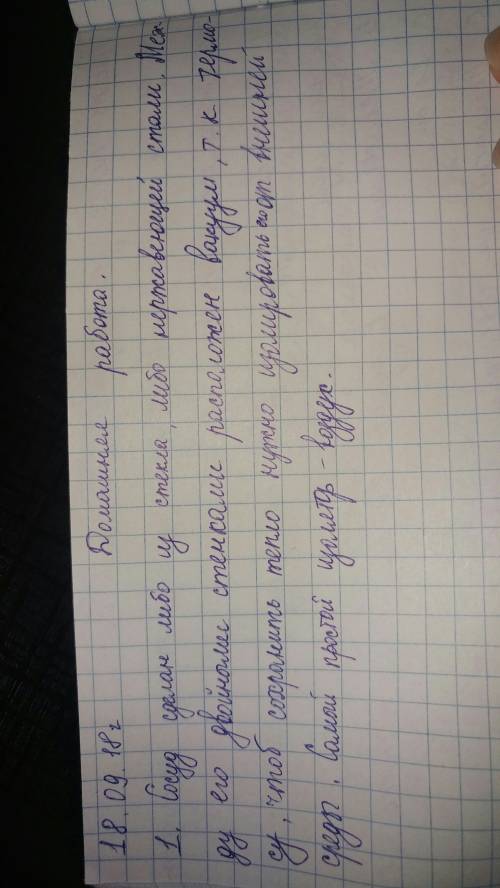 18.09.18г Домашняя работа.
1. Сосуд сделан либо из стекла, либо нержавеющей стали. Меж-
ду его двойными стенками расположен вакуум, т.к термо-
су, чтоб сохранить тепло нужно изолировать его от внешней
среды. Самый простой изолятор - воздух.